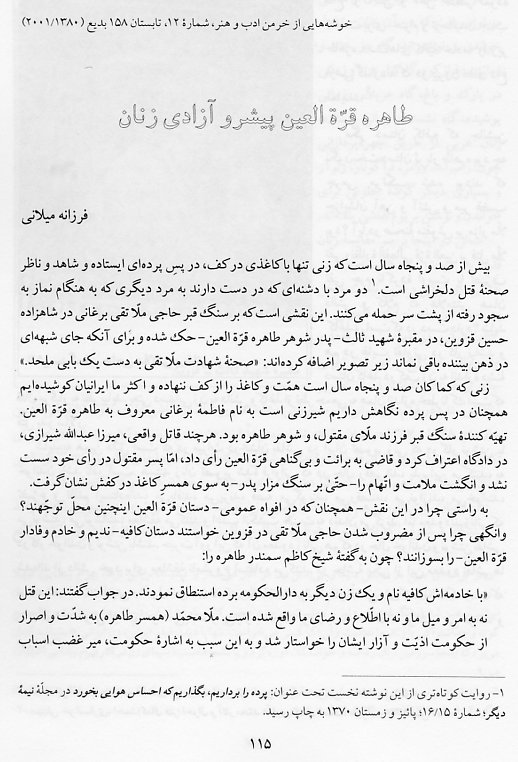 خوشه‌هایی از خرمن ادب و هنر، شمارهٔ ۱۲، تابستان ۱۵۸ بدیع (۲۰۰۱/۱۳۸۰)
طاهره قرّة العین پیشرو آزادی زنان
فرزانه میلانی
بیش از صد و پنجاه سال است که زنی تنها با کاغذی در کف، در پس پرده‌ای ایستاده و شاهد و ناظر
صحنهٔ قتل دلخراشی است.۱ دو مرد با دشنه‌ای که در دست دارند به مرد دیگری که به هنگام نماز به
سجود رفته از پشت سر حمله می‌کنند. این نقشی است که بر سنگ قبر حاجی ملّا تقی برغانی در شاهزاده
حسین قزوین، در مقبرهٔ شهید ثالث- پدر شوهر طاهره قرّة العین- حک شده و برای آنکه جای شبهه‌ای
در ذهن بیننده باقی نماند زیر تصویر اضافه کرده‌اند: «صحنهٔ شهادت ملّا تقی به دست یک بابی ملحد.»
زنی که کماکان صد و پنجاه سال است همّت و کاغذ را از کف ننهاده و اکثر ما ایرانیان کوشیده‌ایم
همچنان در پس پرده نگاهش داریم شیرزنی است به نام فاطمهٔ برغانی معروف به طاهره قرّة العین.
تهیّه کنندهٔ سنگ قبر فرزند ملّای مقتول، و شوهر طاهره بود. هرچند قاتل واقعی، میرزا عبدالله شیرازی،
در دادگاه اعتراف کرد و قاضی به برائت و بی‌گناهی قرّة العین رأی داد، امّا پسر مقتول در رأی خود سست
نشد و انگشت ملامت و اتّهام را- حتّیٰ بر سنگ مزار پدر- به سوی همسر کاغذ در کفش نشان گرفت.
به راستی چرا در این نقش- همچنان که در افواه عمومی- دستان قرّة العین اینچنین محلّ توجّهند؟
وانگهی چرا پس از مضروب شدن حاجی ملّا تقی در قزوین خواستند دستان کافیه- ندیم و خادم وفادار
قرّة العین- را بسوزانند؟ چون به گفتهٔ شیخ کاظم سمندر طاهره را:
«با خادمه‌اش کافیه نام و یک زن دیگر به دارالحکومه برده استنطاق نمودند. در جواب گفتند: این قتل
نه به امر و میل ما و نه با اطّلاع و رضای ما واقع شده است. ملّا محمّد (همسر طاهره) به شدّت و اصرار
از حکومت اذیّت و آزار ایشان را خواستار شد و به این سبب به اشارهٔ حکومت، میر غضب اسباب
۱- روایت کوتاه‌تری از این نوشته نخست تحت عنوان: پرده را برداریم، بگذاریم که احساس هوایی بخورد در مجلّهٔ نیمهٔ
دیگر؛ شمارهٔ ۱۶/۱۵؛ پائیز و زمستان ۱۳۷۰ به چاپ رسید.
۱۱۵